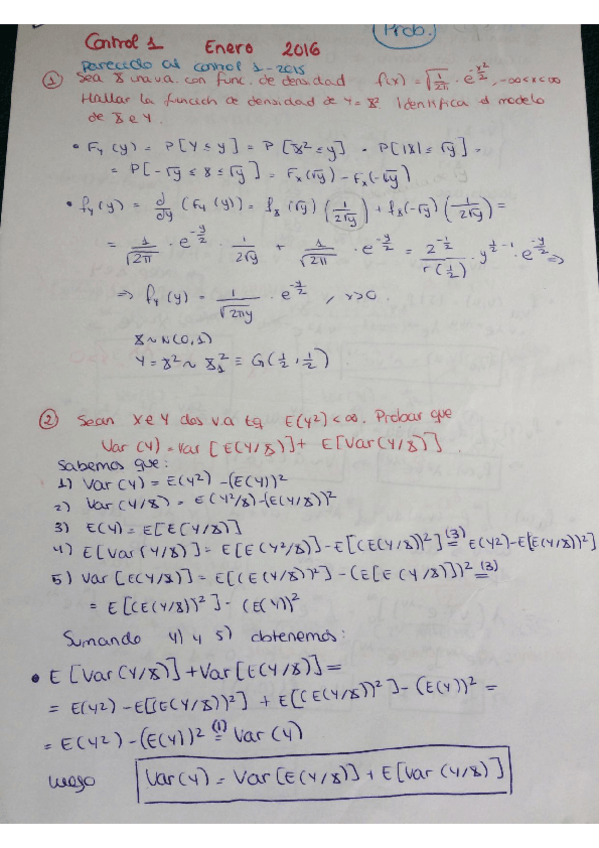 Prob.
Control 1 Enero 2016
Parecido al control 1-2015
① Sea X una va. con func. de densidad f(x) = √(1/2π) · e^(-x²/2), -∞<x<∞
Hallar la función de densidad de Y = X². Identifica el modelo
de X e Y.
• F_Y(y) = P[Y ≤ y] = P[X² ≤ y] = P[|X| ≤ √y] =
= P[-√y ≤ X ≤ √y] = F_X(√y) - F_X(-√y)
• f_Y(y) = d/dy (F_Y(y)) = f_X(√y) (1/2√y) + f_X(-√y) (1/2√y) =
= 1/√2π · e^(-y/2) · 1/2√y + 1/√2π · e^(-y/2) = 2^(-1/2)/Γ(1/2) · y^(1/2-1) · e^(-y/2) ⇒
⇒ f_Y(y) = 1/√2πy · e^(-y/2), y>0.
X ~ N(0,1)
Y = X² ~ X²₁ ≡ G(1/2, 1/2).
② Sean X e Y dos v.a tq E(Y²) < ∞. Probar que
Var(Y) = Var[E(Y/X)] + E[Var(Y/X)].
Sabemos que:
1) Var(Y) = E(Y²) - (E(Y))²
2) Var(Y/X) = E(Y²/X) - (E(Y/X))²
3) E(Y) = E[E(Y/X)]
4) E[Var(Y/X)] = E[E(Y²/X)] - E[(E(Y/X))²] =(3) E(Y²) - E[(E(Y/X))²]
5) Var[E(Y/X)] = E[(E(Y/X))²] - (E[E(Y/X)])² =(3)
= E[(E(Y/X))²] - (E(Y))²
Sumando 4) y 5) obtenemos:
• E[Var(Y/X)] + Var[E(Y/X)] =
= E(Y²) - E[(E(Y/X))²] + E[(E(Y/X))²] - (E(Y))² =
= E(Y²) - (E(Y))² =(1) Var(Y)
luego Var(Y) = Var[E(Y/X)] + E[Var(Y/X)]